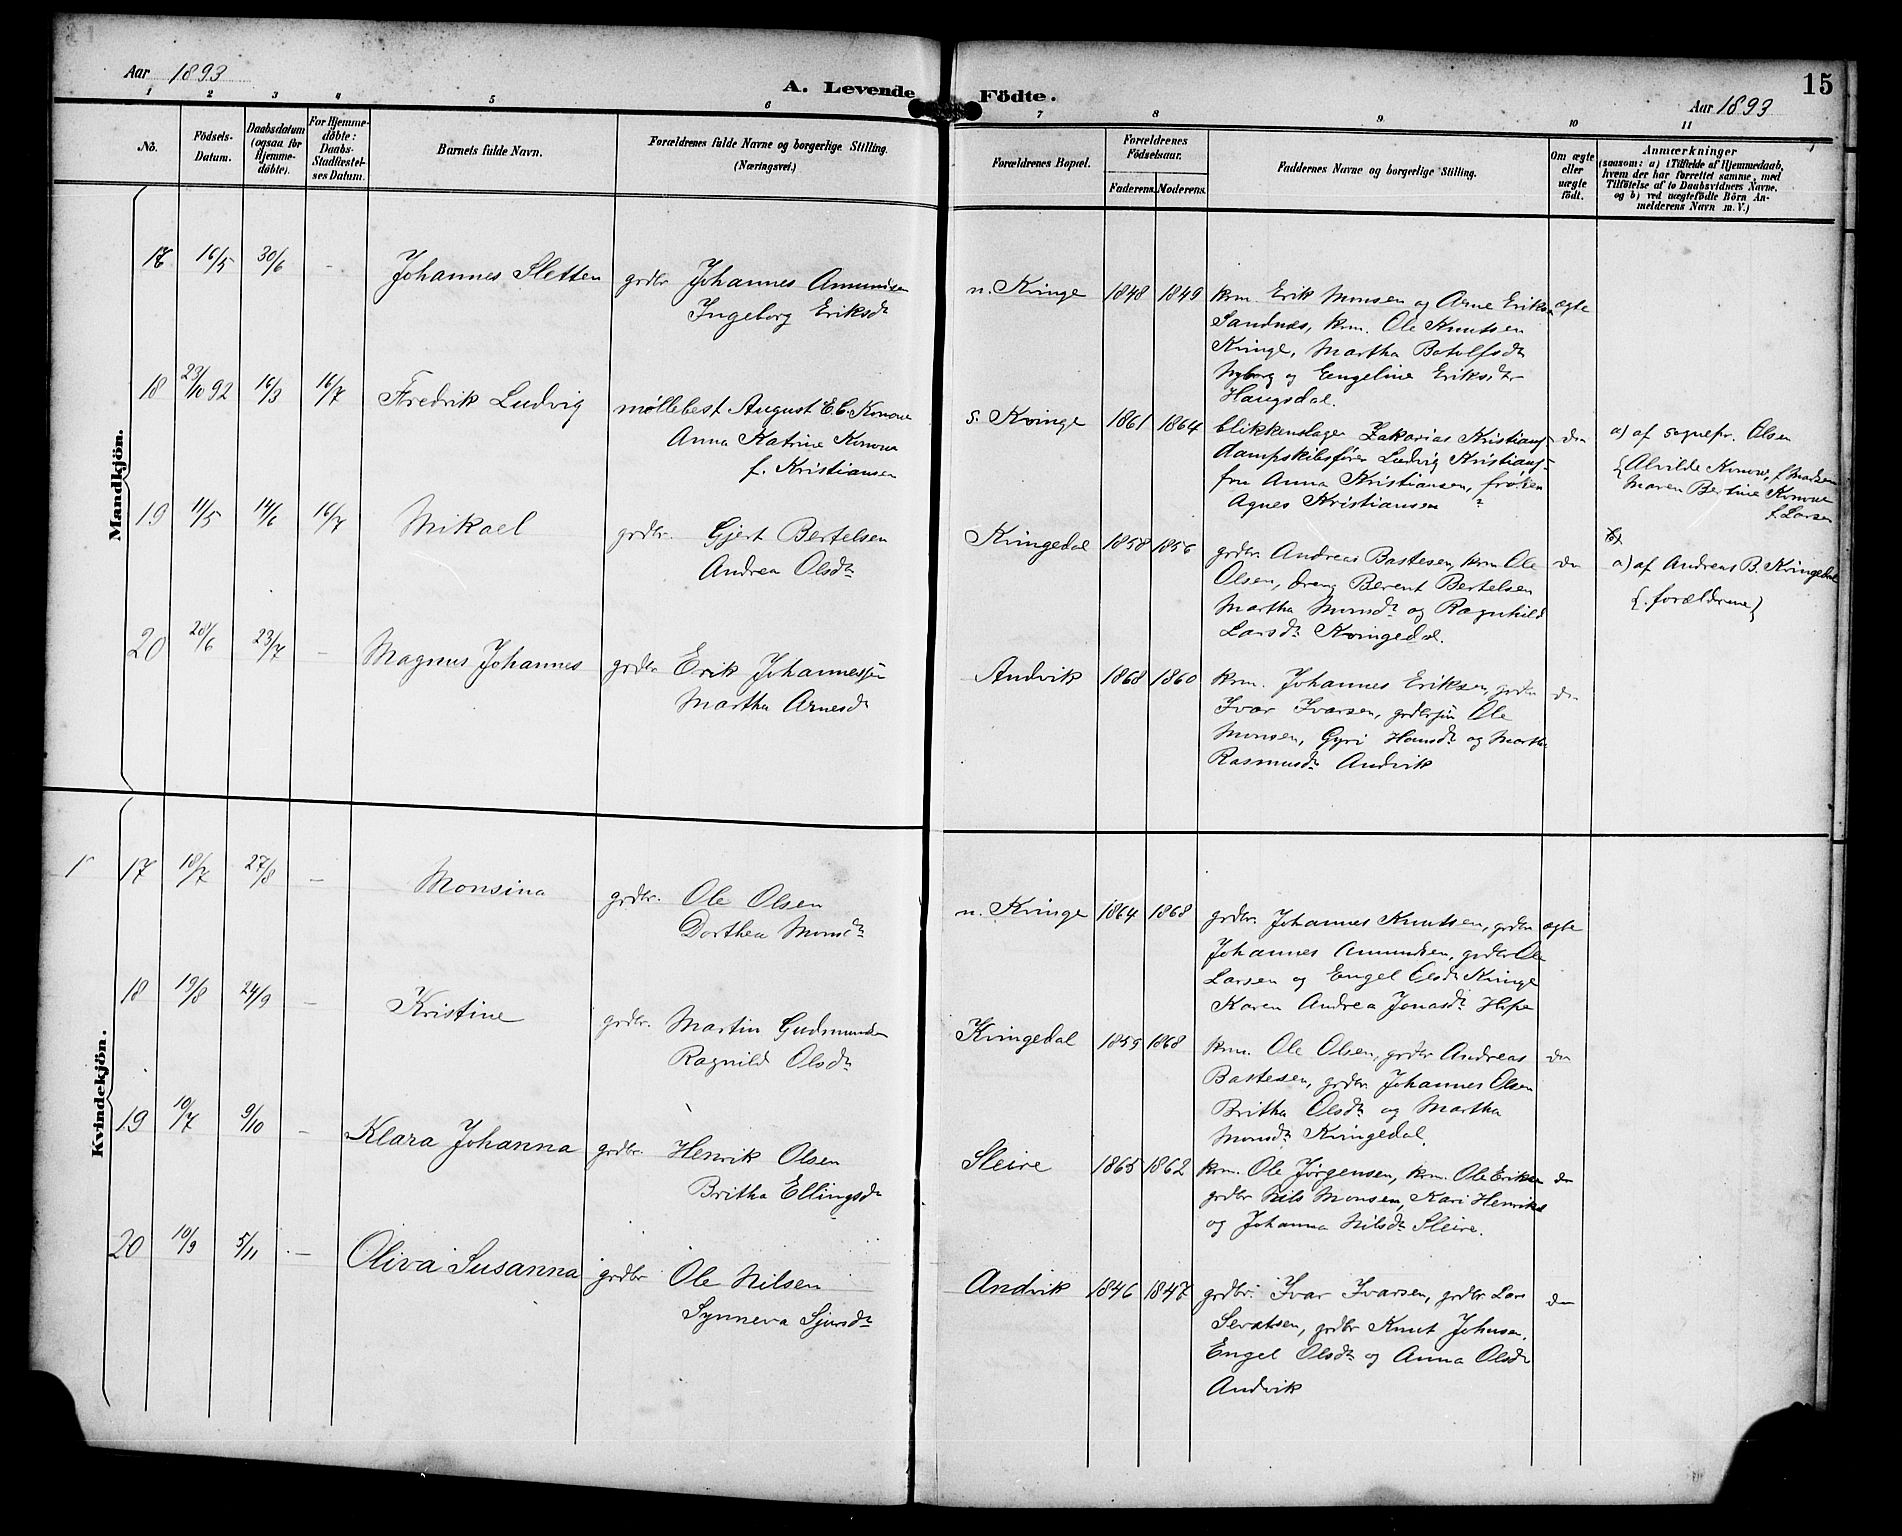 Aar 1893
A. Levende Födte.
15
Aar 1893
1 2 3 4 5 6 7 8 9 10 11
No.
Födsels-Datum.
Daabsdatum (ogsaa for Hjemmedöbte).
For Hjemmedöbte: Daabs-Stadfæstelses Datum.
Barnets fulde Navn.
Forældrenes fulde Navne og borgerlige Stilling. (Næringsvei.)
Forældrenes Bopæl.
Forældrenes Födselsaar.
Faderens. Moderens.
Faddernes Navne og borgerlige Stilling.
Om ægte eller uægte födt.
Anmærkninger
(saasom: a) i Tilfælde af Hjemmedaab,
hvem der har forrettet samme, med
Tilföielse af to Daabsvidners Navne,
og b) ved uægtefödte Börn An-
melderens Navn m. V.)
Mandkjön.
16/5 30/6 - Johannes Sletten grdbr. Johannes Amundsen
Ingeborg Eriksdr
n. Kvinge 1848 1849 krm. Erik Monsen og Arne Eriksen ægte
Sandnæs, krm. Ole Knutsen
Kvinge, Martha Botolfsdr
Nyborg og Engeline Eriksdr
Haugsdal.
18 23/10 92 16/3 16/7 Fredrik Ludvig møllebest August E.C. Konow
Anna Katrine Konow
f. Kristiansen
s. Kvinge 1861 1864 blikkenslager Zakarias Kristians-
dampskibsfører Ludvig Kristians-
fru Anna Kristiansen, frøken
Agnes Kristiansen
do
a) af sognepr. Olsen
{Alvilde Konow, f. Madsen
Maren Bertine Konow
f. Larsen
19 11/5 14/6 16/7 Mikael grdbr. Gjert Bertelsen
Andrea Olsdr
Kvingedal 1858 1856 grdbr. Andreas Bastesen, krm Ole
Olsen, dreng Berent Bertelsen
Martha Monsdr og Ragnhild
Larsdr Kvingedal.
do
a) af Andreas B. Kvingedal
{forældrene}
20 20/6 23/7 - Magnus Johannes grdbr Erik Johannessen
Martha Arnesdr
Andvik 1868 1860 krm. Johannes Eriksen, grdbr
Ivar Ivarsen, grdbrsøn Ole
Monsen, Gyri Hansdr og Martha
Rasmusdr Andvik
do
Kvindekjön.
1 17 18/7 27/8 - Monsina grdbr. Ole Olsen
Dorthea Monsdr
n. Kvinge 1864 1868 grdbr. Johannes Knutsen, grdbr ægte
Johannes Amundsen, grdbr Ole
Larsen og Engel Olsdr Kvinge
Karen Andrea Jonasdr
18 19/8 24/9 - Kristine grdbr. Martin Gudmundsen
Ragnild Olsdr
Kvingedal 1859 1868 krm. Ole Olsen, grdbr Andreas do
Bastesen, grdbr. Johannes Olsen
Britha Olsdr og Martha
Monsdr Kvingedal.
19 10/7 9/10 - Klara Johanna grdbr. Henrik Olsen
Britha Ellingsdr
Sleire 1865 1862 krm. Ole Jørgensen, krm. Ole Eriksen do
grdbr Nils Monsen, Kari Henriksd
og Johanna Nilsdr Sleire.
20 10/9 5/11 - Oliva Susanna grdbr Ole Nilsen
Synneva Sjursdr
Andvik 1846 1847 grdbr. Ivar Ivarsen, grdbr Lars do
Sevatsen, grdbr Knut Johnsen,
Engel Olsdr og Anna Olsdr
Andvik